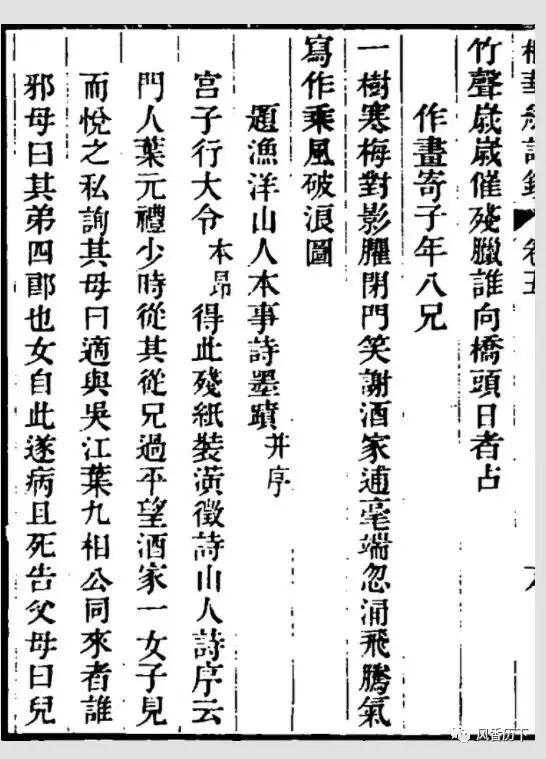 詩鈔 卷五
竹聲歲歲催殘臘誰向橋頭日者占
作畫寄子年八兄
一樹寒梅對影臞閉門笑謝酒家逋毫端忽涌飛騰氣
寫作乘風破浪圖
題漁洋山人本事詩墨蹟 并序
宮子行大令 本昂 得此殘紙裝潢徵詩山人詩序云
門人葉元禮少時從其從兄過平望酒家一女子見
而悅之私詢其母曰適與吳江葉九相公同來者誰
邪母曰其弟四郎也女自此遂病且死告父母曰兒
风香历下